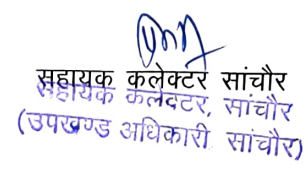 सहायक कलेक्टर सांचौर
सहायक कलेक्टर, सांचौर
(उपखण्ड अधिकारी सांचौर)